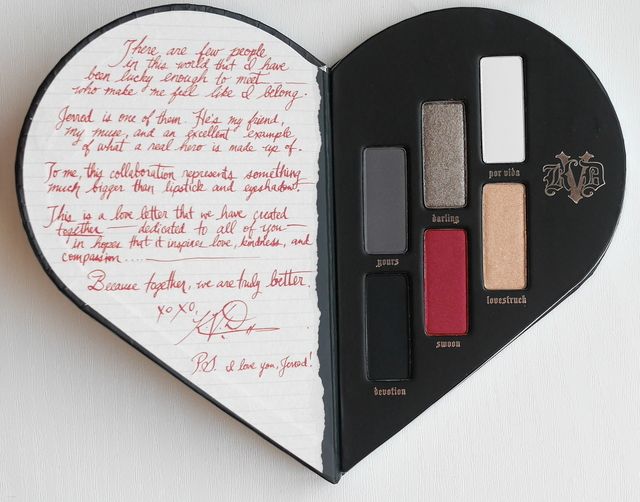 There are few people
in this world that I have
been lucky enough to meet
who make me feel like I belong.
Jerred is one of them. He's my friend,
my muse, and an excellent example
of what a real hero is made up of.
To me, this collaboration represents something
much bigger than lipstick and eyeshadow.
This is a love letter that we have created
together — dedicated to all of you —
in hopes that it inspires love, kindness, and
compassion....
Because together, we are truly better.
XOXO,
KVD
P.S. I love you, Jerred!
por vida
darling
yours
lovestruck
swoon
devotion
KVD